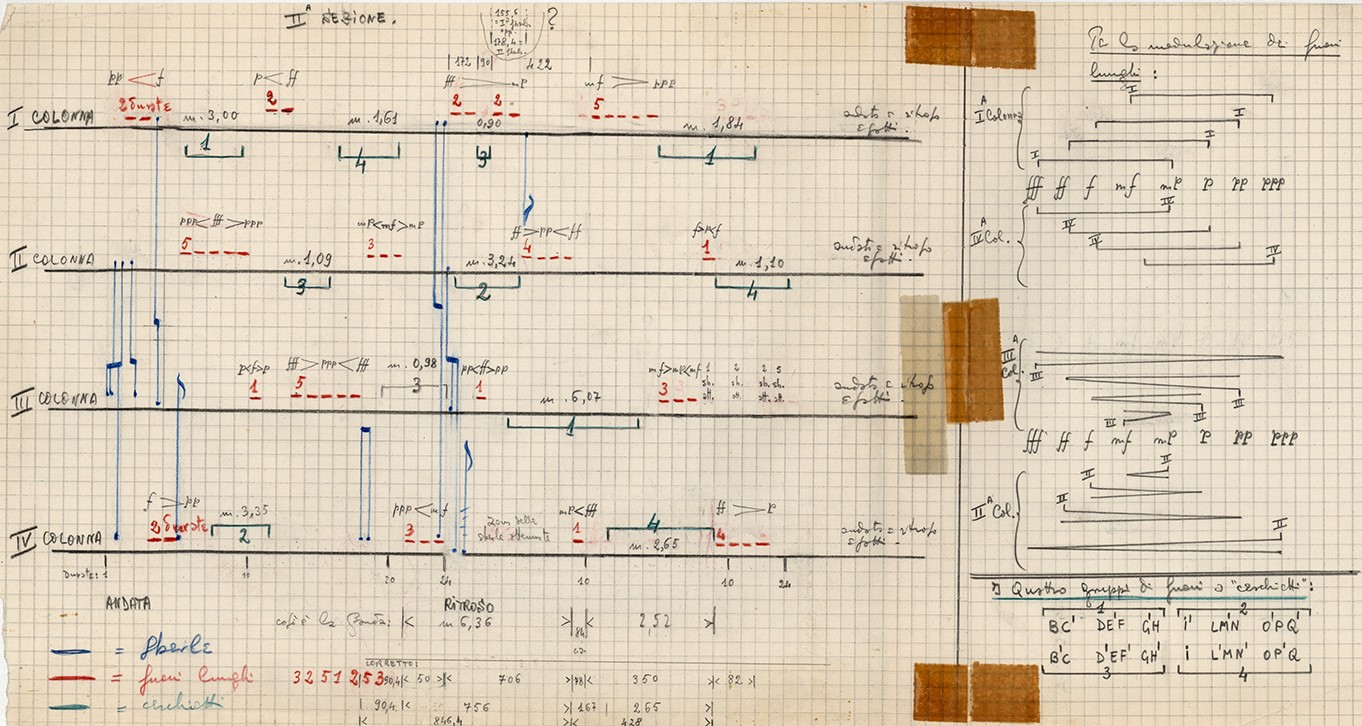 II A SEZIONE.
155,6
178,4 =
?
|172|90| 422
pp < f
p < ff
fff > mp
mf > ppp
2 durate
2
2 2
5
I COLONNA
m. 3,00
m. 1,61
0,90
m. 1,84
1
4
3
1
ppp < fff > ppp
mp < mf > mp
ff > pp < ff
f > p < f
5
3
4
1
II COLONNA
m. 1,09
m. 3,24
m. 1,10
3
2
4
p < f > p
fff > ppp < fff
m. 0,98
pp < ff > pp
mf > mp < mf
1 2 2 5
sb. sb. sb. sb.
ott. ott. ott. ott.
1
5
3
1
3
III COLONNA
m. 6,07
1
f > pp
ppp < mf
mp < fff
ff > p
2 durate
m. 3,35
2
3
1
4
4
IV COLONNA
m. 2,65
Durate: 1
10
20
24
10
10
24
ANDATA
RITROSO
m 6,36
84
2,52
= Sberle
= fuori lunghi
3 2 5 1 2 5 3
CORRETTO:
90,4 |< 50 >|< 706 >|98|< 350 >|< 82 >|
= cerchietti
90,4 756 >|< 167 | 265
846,4 428
Per la modulazione di fuori
lunghi:
I A Colonna
I
I
I
I
fff ff f mf mp p pp ppp
IV A Col.
IV
IV
IV
IV
III A Col.
III
III
III
III
fff ff f mf mp p pp ppp
II A Col.
II
II
II
II
Quattro gruppi di fuori a "cerchietti":
1
2
BC' DE'F G'H I' LM'N O'PQ'
B'C D'EF' GH' I L'MN' OP'Q
3
4